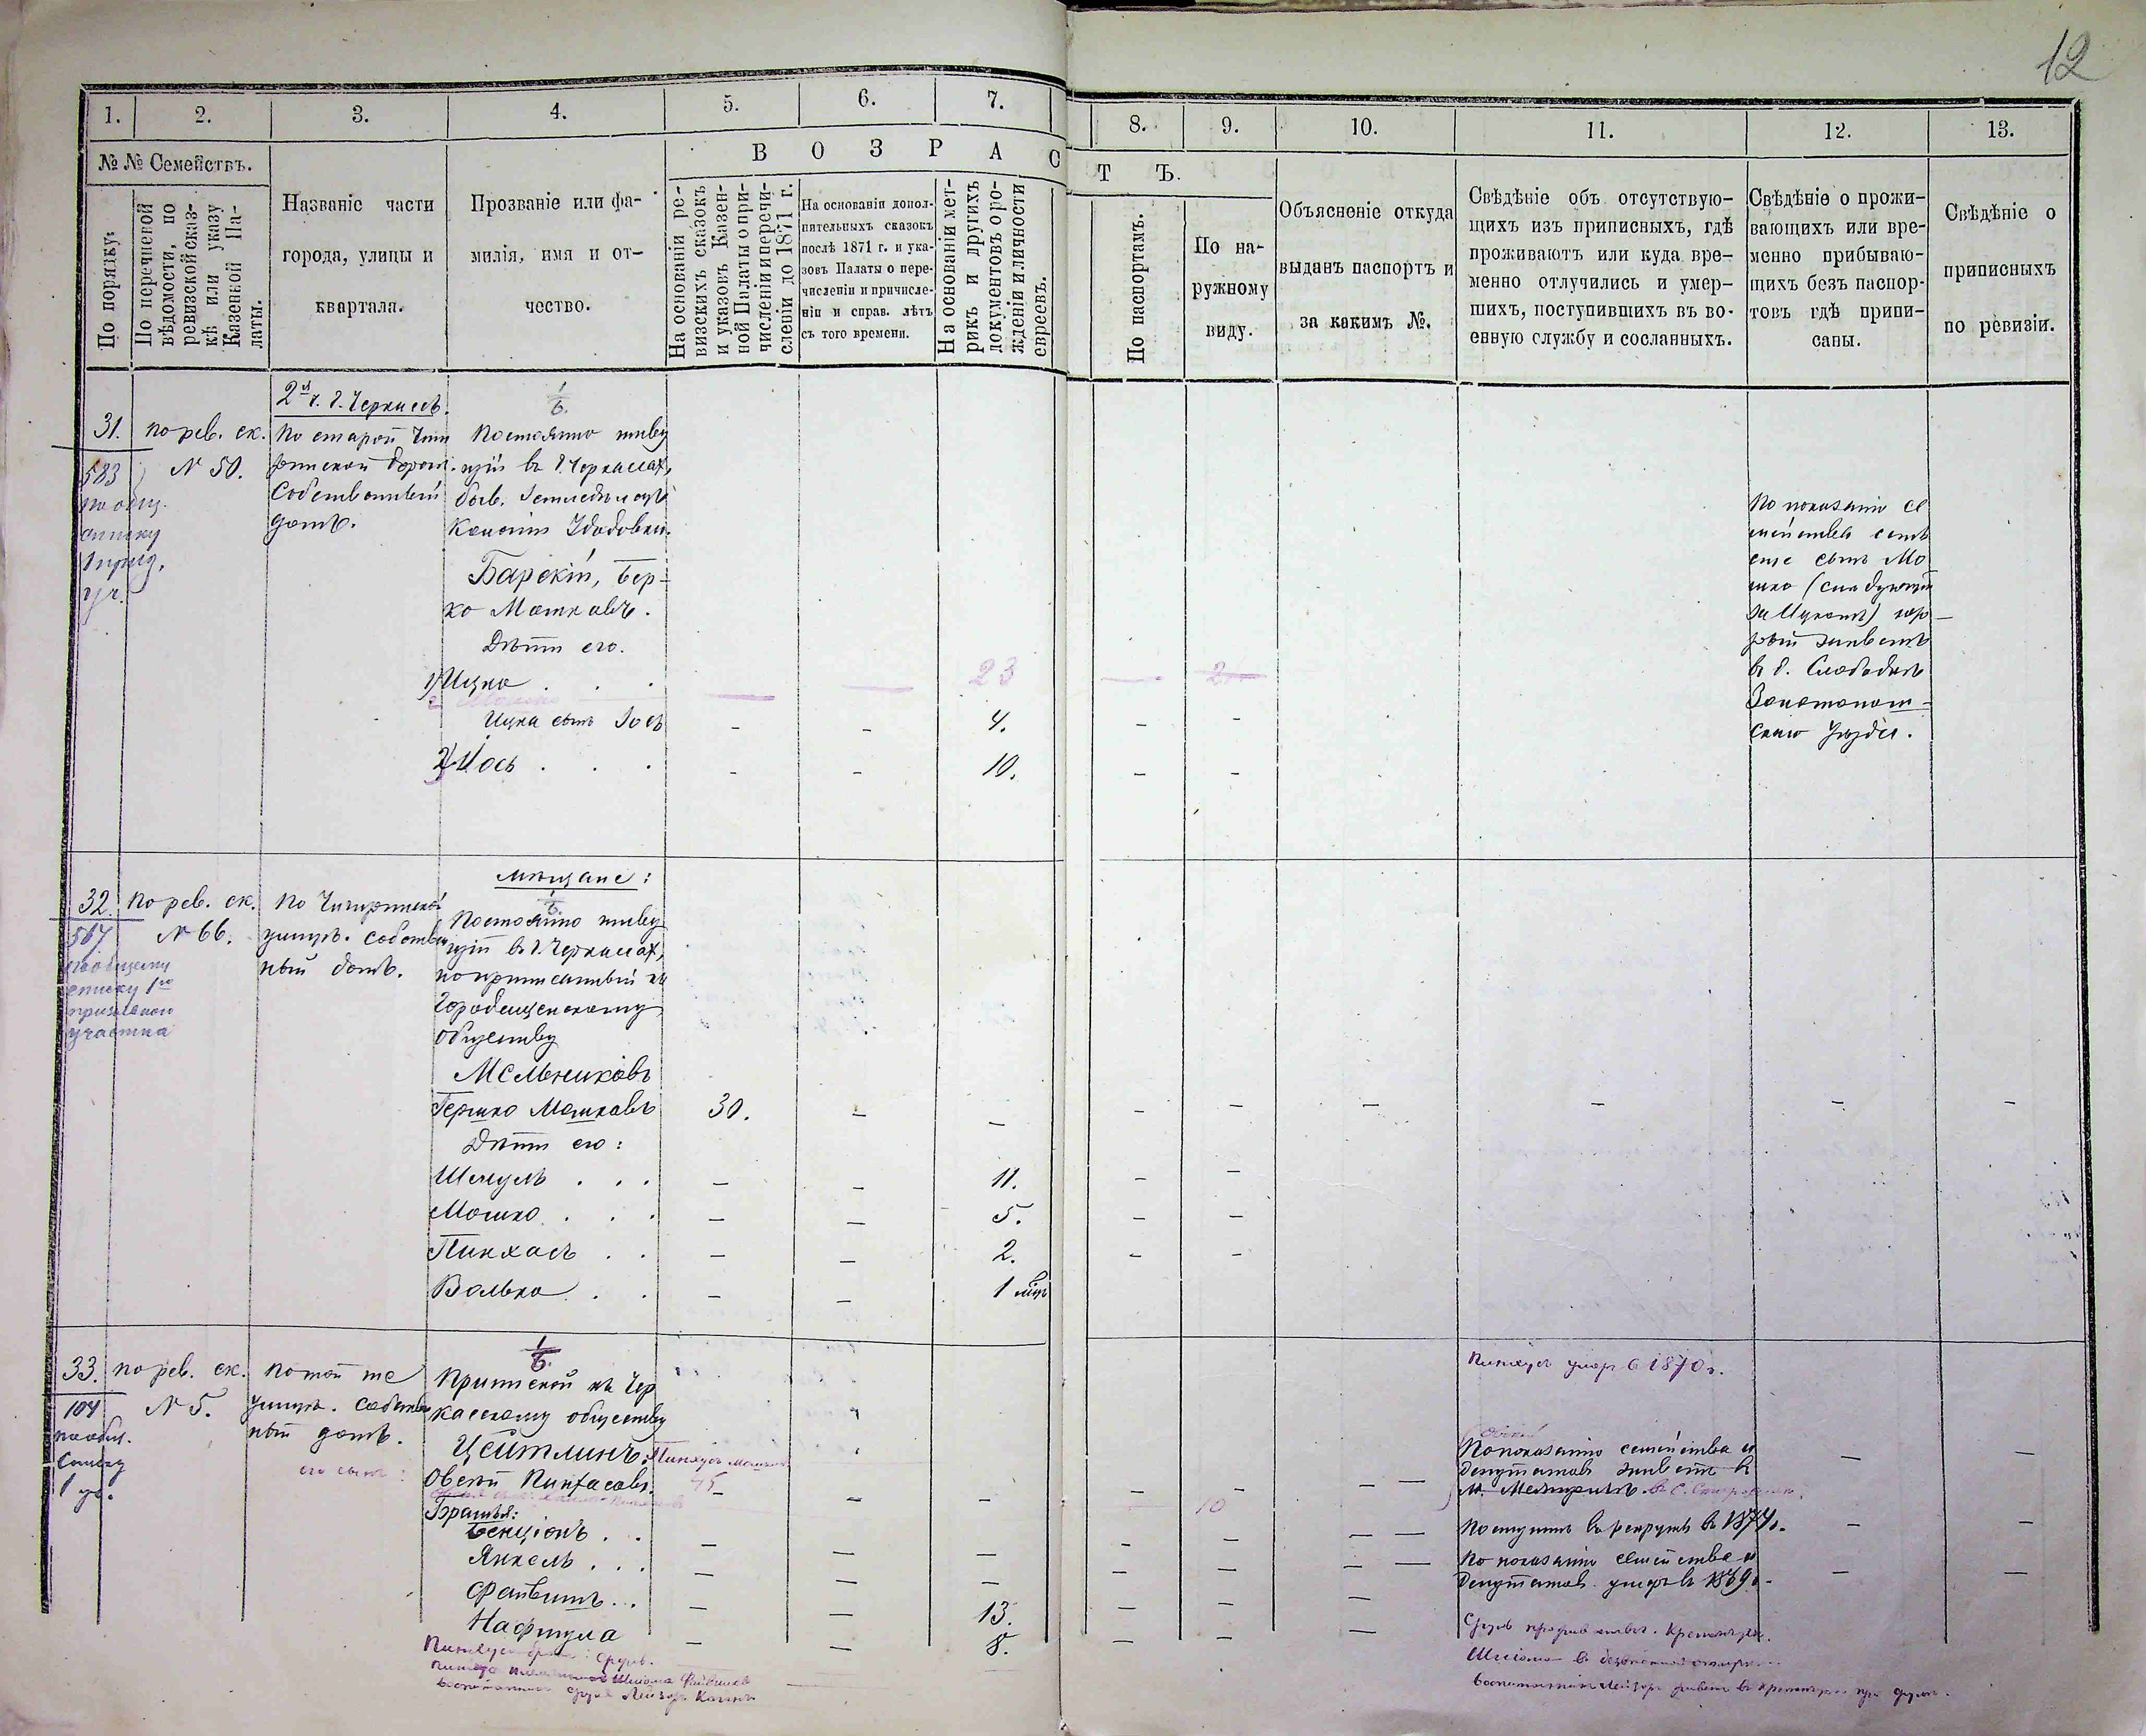 12
1.
2.
3.
4.
5.
6.
7.
8.
9.
10.
11.
12.
13.
№ № Семействъ.
В О З Р А С
Т Ъ.
По порядку:
По перечневой
вѣдомости, по
ревизской сказ-
кѣ или указу
Казенной Па-
латы.
Названіе части
города, улицы и
квартала.
Прозваніе или фа-
милія, имя и от-
чество.
На основаніи ре-
визскихъ сказокъ
и указовъ Казен-
ной Палаты о при-
численіи и перечи-
сленіи до 1871 г.
На основаніи допол-
нительныхъ сказокъ
послѣ 1871 г. и ука-
зовъ Палаты о пере-
численіи и причисле-
ніи и справ. лѣтъ
съ того времени.
На основаніи мет-
рикъ и другихъ
документовъ о ро-
жденіи и личности
евреевъ.
По паспортамъ.
По на-
ружному
виду.
Объясненіе откуда
выданъ паспортъ и
за какимъ №.
Свѣдѣніе объ отсутствую-
щихъ изъ приписныхъ, гдѣ
проживаютъ или куда вре-
менно отлучились и умер-
шихъ, поступившихъ въ во-
енную службу и сосланныхъ.
Свѣдѣніе о прожи-
вающихъ или вре-
менно прибываю-
щихъ безъ паспор-
товъ гдѣ припи-
саны.
Свѣдѣніе о
приписныхъ
по ревизіи.
31.
583
по общ.
списку
1 призд.
уч.
по рев. ск.
№ 50.
2я ч. г. Черкассъ.
По старой Чиги
ринской дорог.
Собственный
домъ.
1/6.
Постоянно живу
щій въ г. Черкассах,
быв. Земледѣлецъ
Колоніи
Барскій, Бер-
ко Мошковъ.
Дѣти его.
1) Ицко . . .
23
2
Ицка сынъ Іось
- - 4. - -
2) Іось . . .
- - 10. - -
По показанію се
мейства есть
еще сынъ Мо
шко (слѣдующій
за Ицкомъ) кото
рый живетъ
в д. Слободкѣ
Золотонош-
скаго уѣзда.
32.
567
по общему
списку 1го
призывного
участка
по рев. ск.
№ 66.
по Чигиринской
улицѣ. собствен
ный домъ.
Мѣщане:
Постоянно живу
щій въ г. Черкассах,
но приписанный къ
Городищенскому
обществу
Мельниковъ
Гершко Мошковъ
30. - - - - - - - -
Дѣти его:
Шмуль . . .
- - 11. - -
Мошко . . .
- - 5. - -
Пинхасъ . .
- - 2. - -
Волько . .
- - 1 мѣц
33.
104
по общ.
списку
1 уч.
по рев. ск.
№ 5.
по той же
улицѣ. собствен
ный домъ.
его сынъ:
1/6.
Приписной къ Чер
касскому обществу
Цейтлинъ: Пинхусъ Мошковъ
75
Овсѣй Пинхасовъ.
10
Братья:
Бенціонъ . .
Янкель . . .
Файвишъ . .
13.
Нафтула
8.
Пинхус умер в 1870 г.
По показанію семейства и
депутатовъ живетъ в
Поступил въ рекруты въ 1874 г.
По показанію семейства и
депутатов. умеръ в 1869 г.